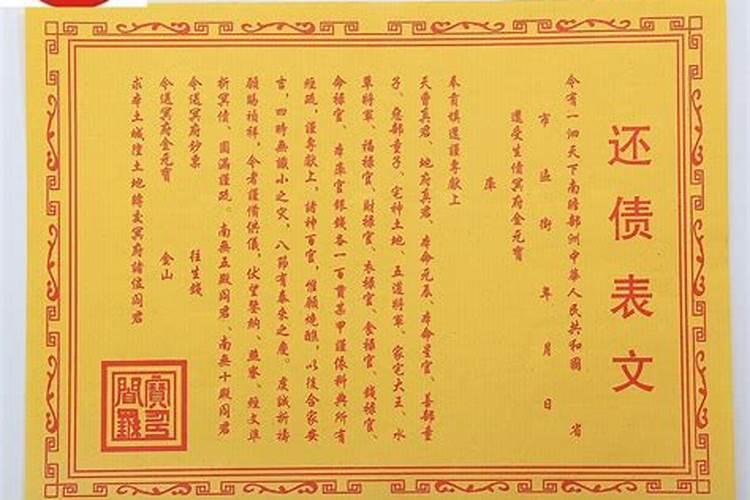 还债表文
今有一泗天下南瞻部洲中華人民共和國 省
市 區 街 年 月 日
還受生債冥府金元寶
庫
奉育填還謹專獻上
天曹真君、地府真君、本命元辰、本命星官、善部童
子、惡部童子、宅神土地、五道將軍、家宅大王、水
草將軍、福禄官、財禄官、衣禄官、食禄官、錢禄官、
命禄官、本庫官銀錢各一百貫某甲謹依科典所有
經疏，謹專獻上，諸神百官，惟願燒醮，以後合家安
吉，四時無讖小之灾，八節有泰來之慶。虔誠祈禱
願賜禎祥，令者謹備供儀，伏望鑒納、燕寥、經文準
折冥債、圓滿謹疏。南無五殿阎君、南無十殿阎君
今送冥府鈔票 往生錢
今送冥府金元寶 金山
求本土城隍土地轉交冥府諸位阎君